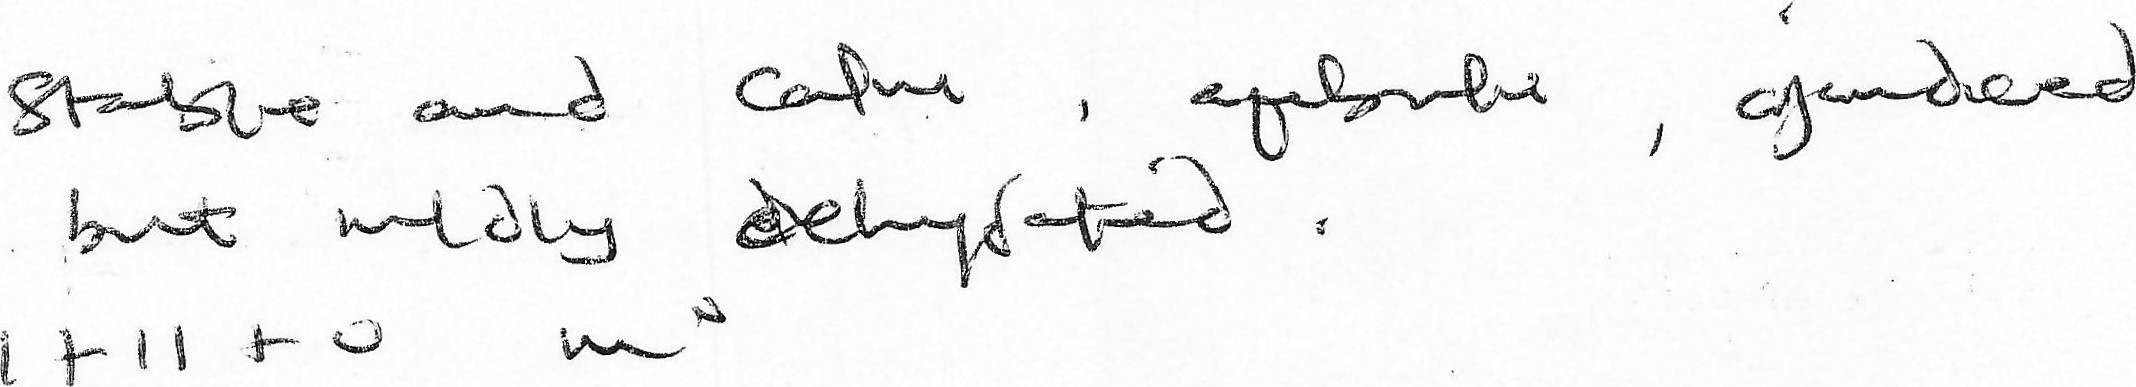 Stable and calm, afebrile, ajaundiced
but mildly dehydrated.
I + II + 0 m°